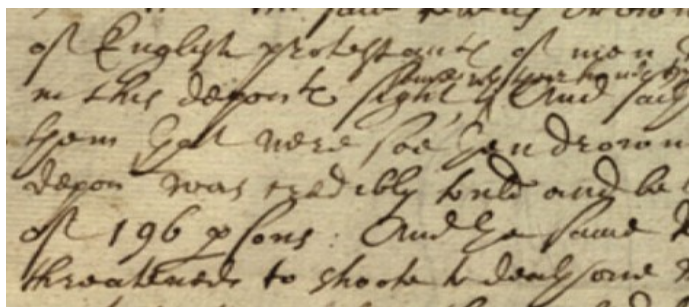 the said rebells drown
of English protestants of men
in this deponts sight & And saith
them that were soe then drown
depon was credibly tould and be
of 196 psons: And he same
threatened to shoote to death some